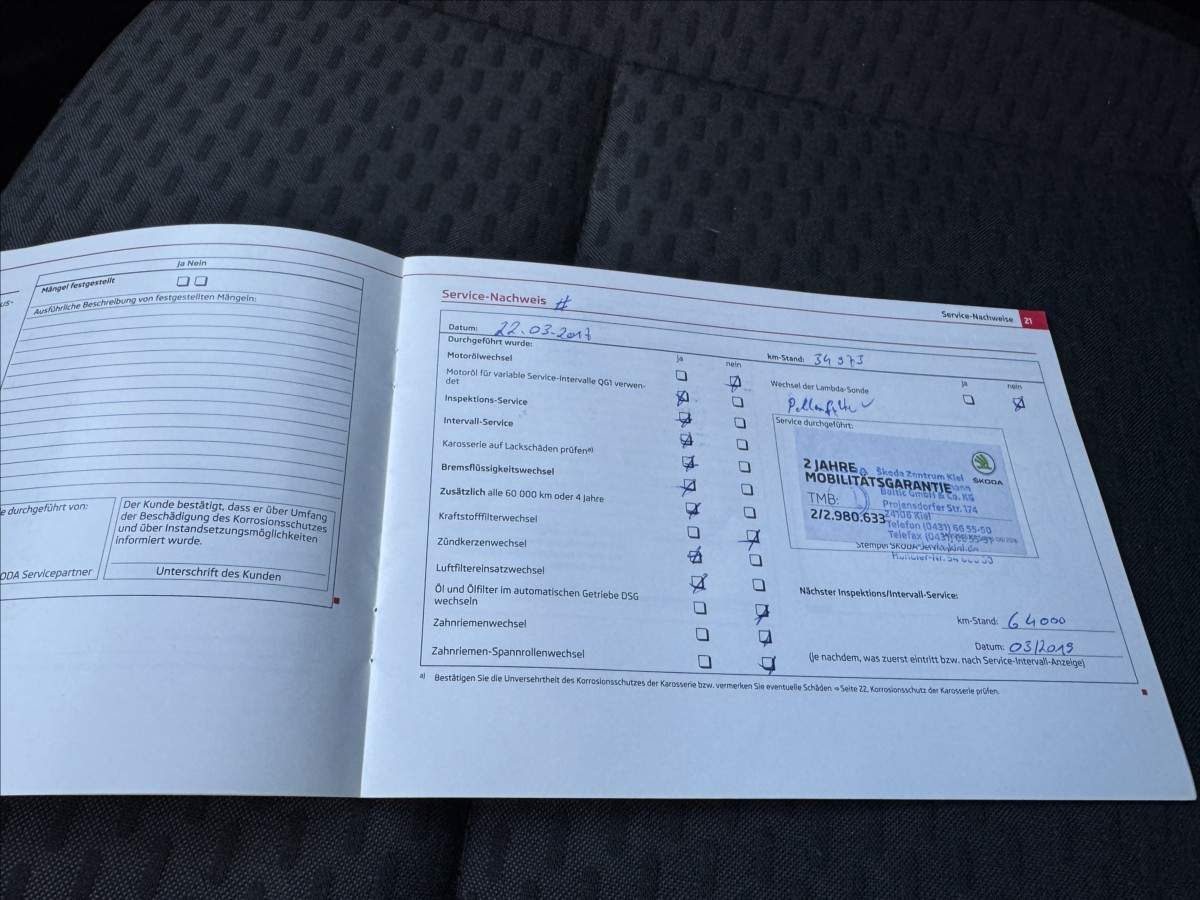 Ja Nein
Mängel festgestellt
Ausführliche Beschreibung von festgestellten Mängeln:
e durchgeführt von:
ODA Servicepartner
Der Kunde bestätigt, dass er über Umfang
der Beschädigung des Korrosionsschutzes
und über Instandsetzungsmöglichkeiten
informiert wurde.
Unterschrift des Kunden
Service-Nachweise 21
Service-Nachweis #
Datum: 22.03.2017
km-Stand: 34 973
Durchgeführt wurde:
ja nein
Motorölwechsel
Motoröl für variable Service-Intervalle QG1 verwen-
det
Inspektions-Service
Intervall-Service
Karosserie auf Lackschäden prüfen a)
Bremsflüssigkeitswechsel
Zusätzlich alle 60 000 km oder 4 Jahre
Kraftstofffilterwechsel
Zündkerzenwechsel
Luftfiltereinsatzwechsel
Öl und Ölfilter im automatischen Getriebe DSG
wechseln
Zahnriemenwechsel
Zahnriemen-Spannrollenwechsel
ja nein
Wechsel der Lambda-Sonde
Pollenfilter ✓
Service durchgeführt:
2 JAHRE
MOBILITÄTSGARANTIE
TMB:
2/2.980.633
ŠKODA
Škoda Zentrum Kiel
Baltic GmbH & Co. KG
Projensdorfer Str. 174
24106 Kiel
Telefon (0431) 66 55-50
Telefax (0431)
Stempel ŠKODA Servicepartner
Nächster Inspektions/Intervall-Service:
km-Stand: 64000
Datum: 03/2019
(Je nachdem, was zuerst eintritt bzw. nach Service-Intervall-Anzeige)
a) Bestätigen Sie die Unversehrtheit des Korrosionsschutzes der Karosserie bzw. vermerken Sie eventuelle Schäden ⇒ Seite 22, Korrosionsschutz der Karosserie prüfen.